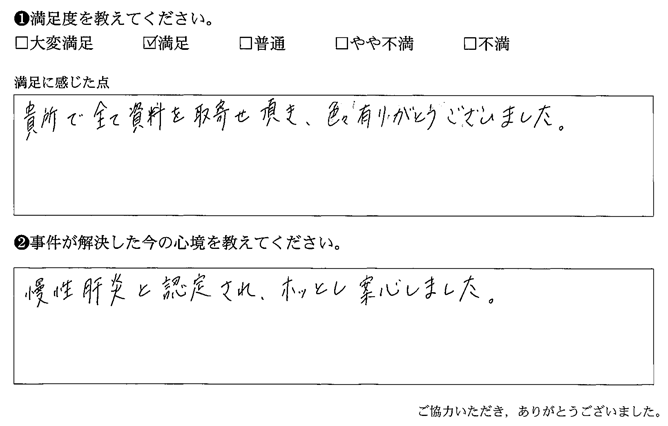 ❶満足度を教えてください。
□大変満足 ☑満足 □普通 □やや不満 □不満
満足に感じた点
貴所で全て資料を取寄せ頂き、色々有りがとうございました。
❷事件が解決した今の心境を教えてください。
慢性肝炎と認定され、ホッとし案心しました。
ご協力いただき，ありがとうございました。